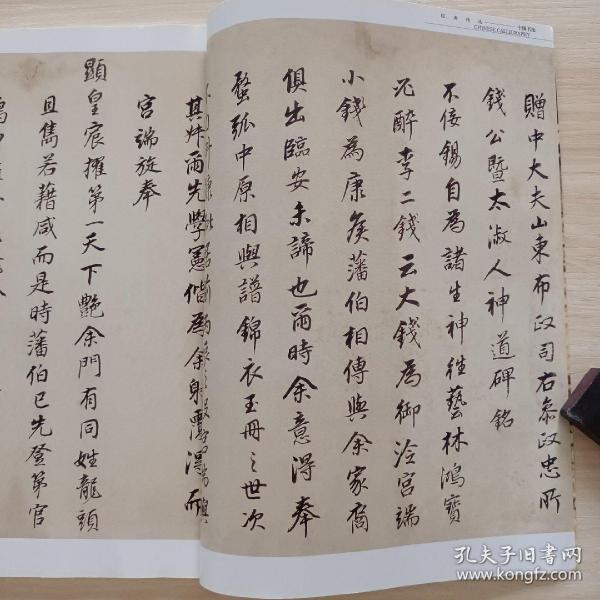 CHINESE CALLIGRAPHY
贈中大夫山東布政司右參政忠所
錢公暨太淑人神道碑銘
不佞錫自為諸生神往藝林鴻寶
沉酔李二錢云大錢為御冷宮端
小錢為康侯藩伯相傳與余家裔
俱出臨安未諦也爾時余意得奉
蝥弧中原相與譜錦衣玉冊之世次
其炑兩先學憲偕
余身
得而
宮端放奉
顯皇宸擢第一天下艷余門有同姓龍頭
且雋若藉咸而是時藩伯已先登第官
孔夫子旧书网
www.kongfz.com